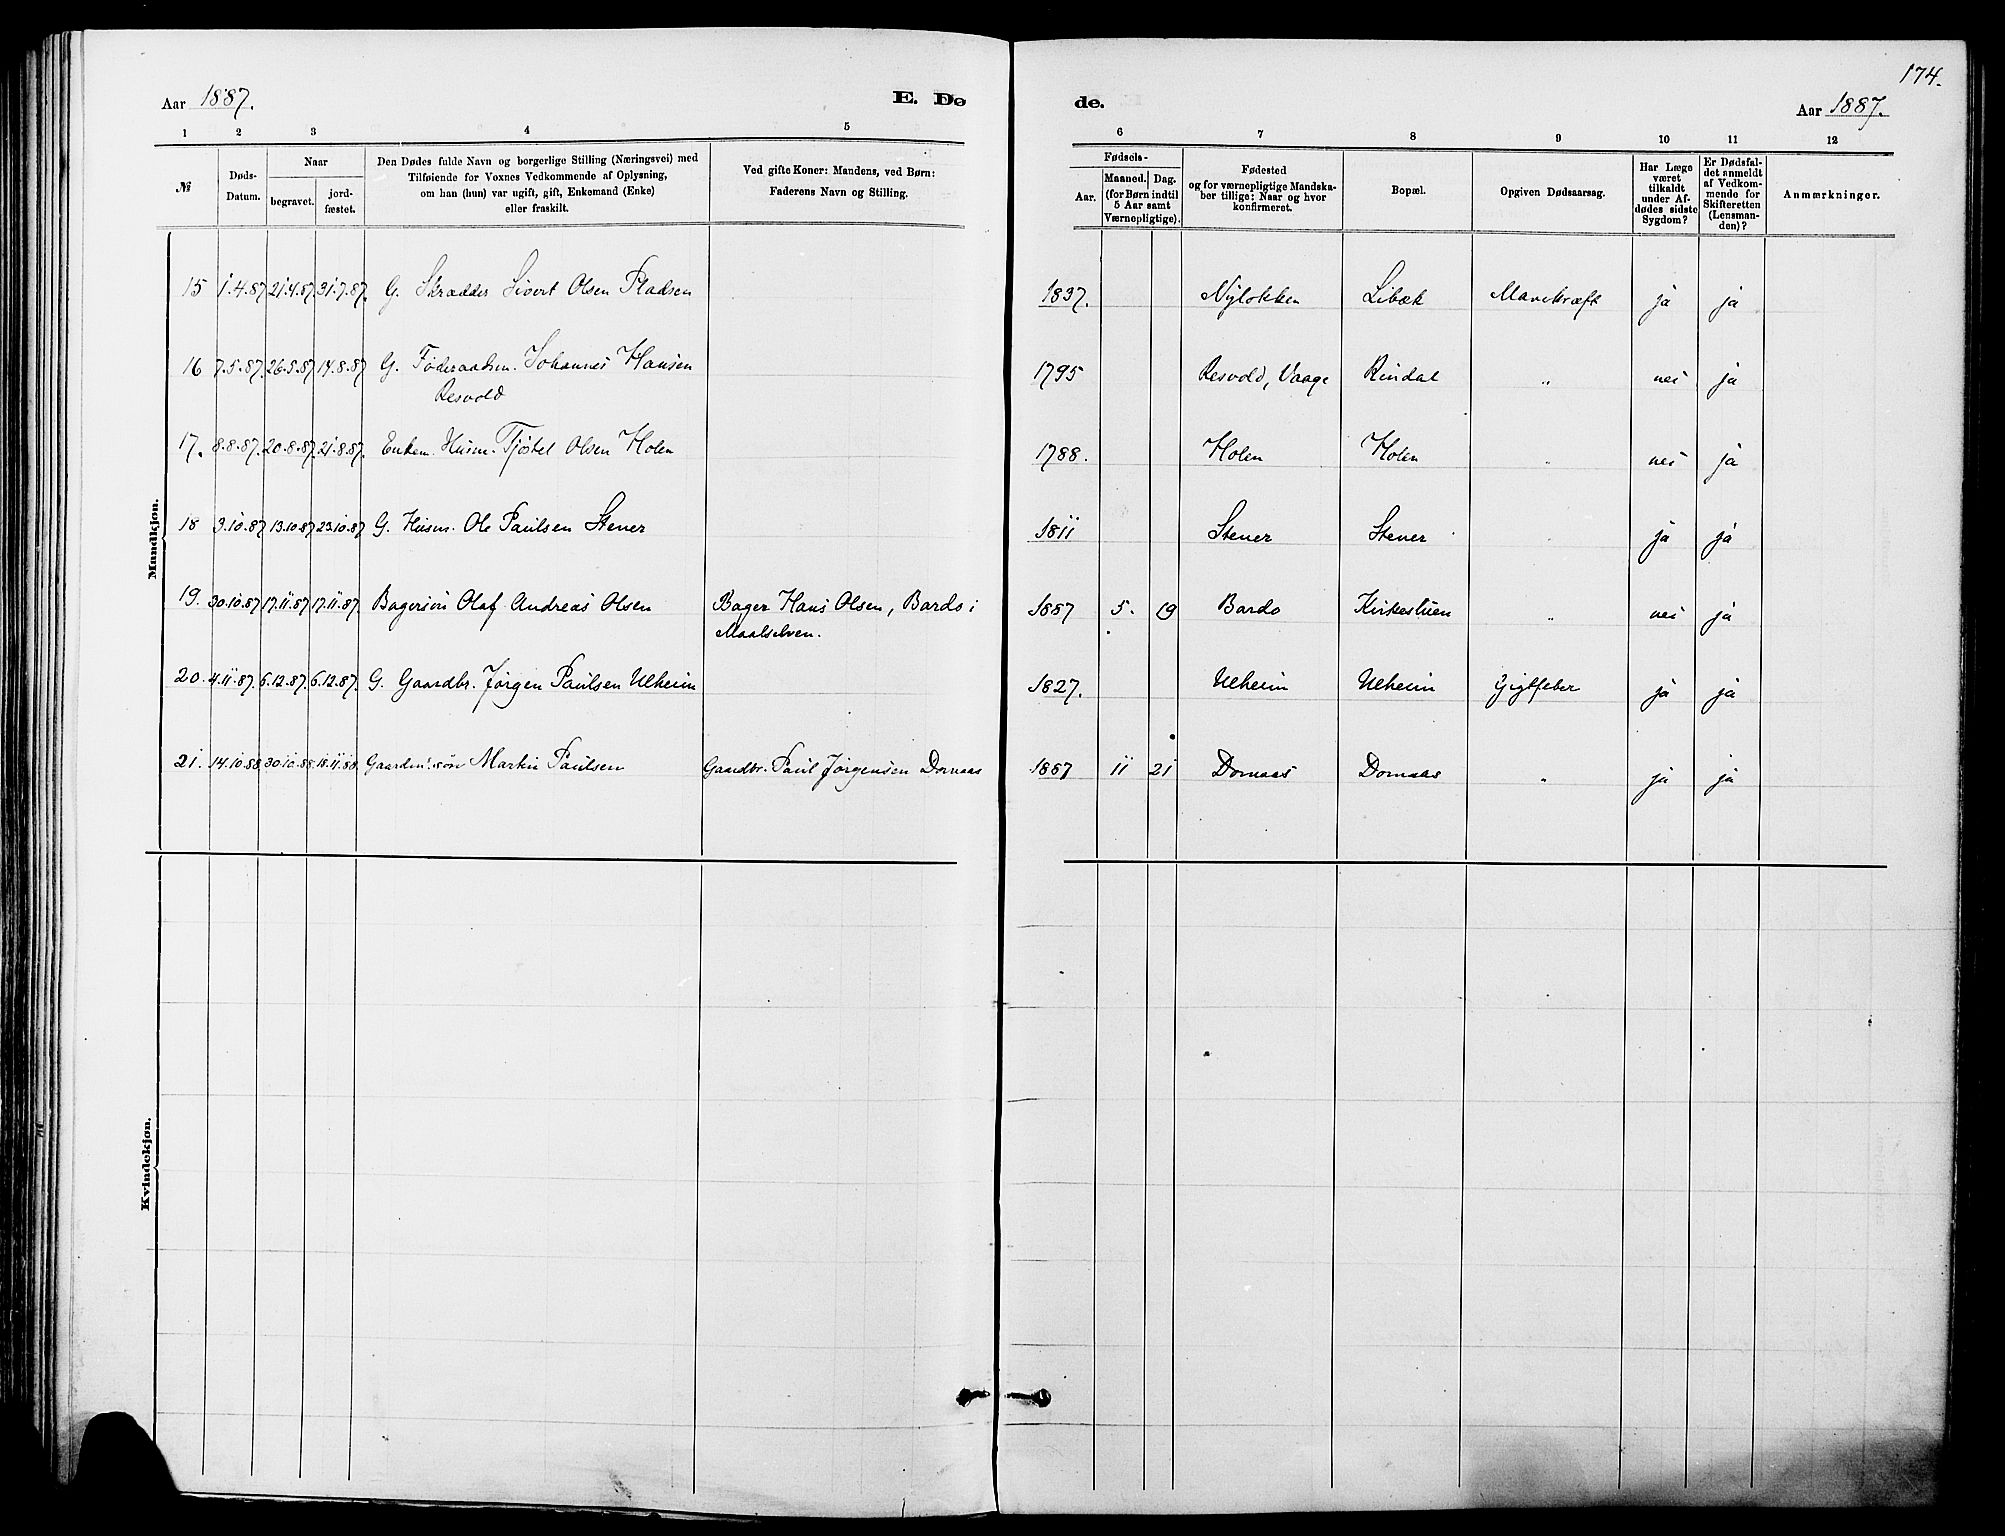 174.
Aar 1887.
E. Dø
de.
Aar 1887.
1 2 3 4 5
6 7 8 9 10 11 12
№
Døds-Datum.
Naar
begravet.
jord-fæstet.
Den Dødes fulde Navn og borgerlige Stilling (Næringsvei) med
Tilføiende for Voxnes Vedkommende af Oplysning,
om han (hun) var ugift, gift, Enkemand (Enke)
eller fraskilt.
Ved gifte Koner: Mandens, ved Børn:
Faderens Navn og Stilling.
Fødsels-
Aar.
Maaned. Dag.
(for Børn indtil
5 Aar samt
Værnepligtige).
Fødested
og for værnepligtige Mandska-
ber tillige: Naar og hvor
konfirmeret.
Bopæl.
Opgiven Dødsaarsag.
Har Læge
været
tilkaldt
under Af-
dødes sidste
Sygdom?
Er Dødsfal-
det anmeldt
af Vedkom-
mende for
Skifteretten
(Lensman-
den)?
Anmærkninger.
Mandkjøn.
15 1.4.87 21.4.87 31.7.87. G. Skrædder Sivert Olsen Pladsen 1837. Nyløkken Libæk Mavekræft ja ja
16 7.5.87. 26.5.87 14.8.87 G. Føderaadsm. Johannes Hansen 1795 Resvold, Vaage Rindal " nei ja
Resvold
17. 8.8.87. 20.8.87. 21.8.87. Enkem. Husm. Tjøstel Olsen Holen 1788. Holen Holen " nei ja
18 3.10.87 13.10.87 23.10.87 G. Husm. Ole Paulsen Stener 1811 Stener Stener " ja ja
19. 30.10.87 17.11.87 17.11.87. Bagersøn Olaf Andreas Olsen Bager Hans Olsen, Bardo i 1887 5. 19 Bardo Kirkestuen " nei ja
Maalselven.
20. 4.11.87. 6.12.87. 6.12.87. G. Gaardbr. Jørgen Paulsen Ulheim 1827. Ulheim Ulheim Gigtfeber ja ja
21. 14.10.88 30.10.88 18.11.88. søn Martin Paulsen Gaardbr. Paul Jørgensen Dornaas 1887 11 21 Dornaas Dornaas " ja ja
Kvindekjøn.